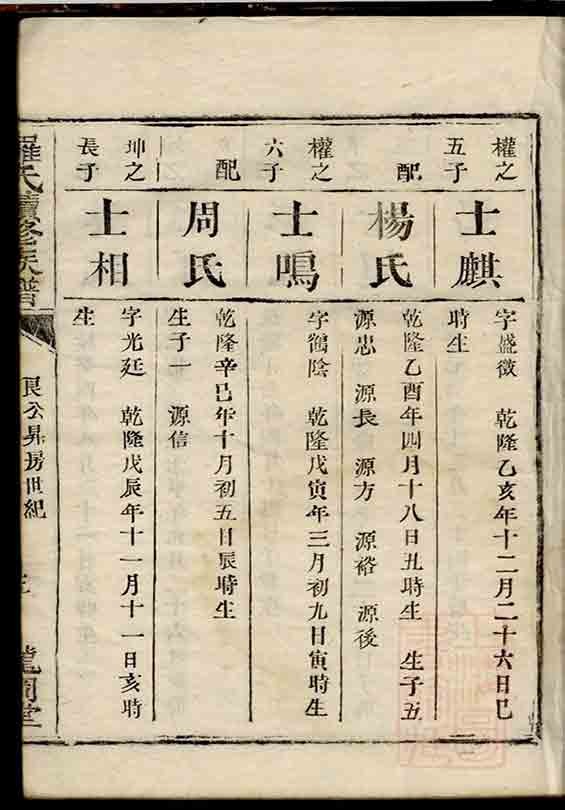 權之
五子
士麒
字盛徵 乾隆乙亥年十二月二十六日巳
時生
配
楊氏
乾隆乙酉年四月十八日丑時生 生子五
源忠 源長 源方 源裕 源後
權之
六子
士鳴
字鶴陰 乾隆戊寅年三月初九日寅時生
配
周氏
乾隆辛巳年十月初五日辰時生
生子一 源信
坤之
長子
士相
字光廷 乾隆戊辰年十一月十一日亥時
生
羅氏續修族譜
良公昇房世紀